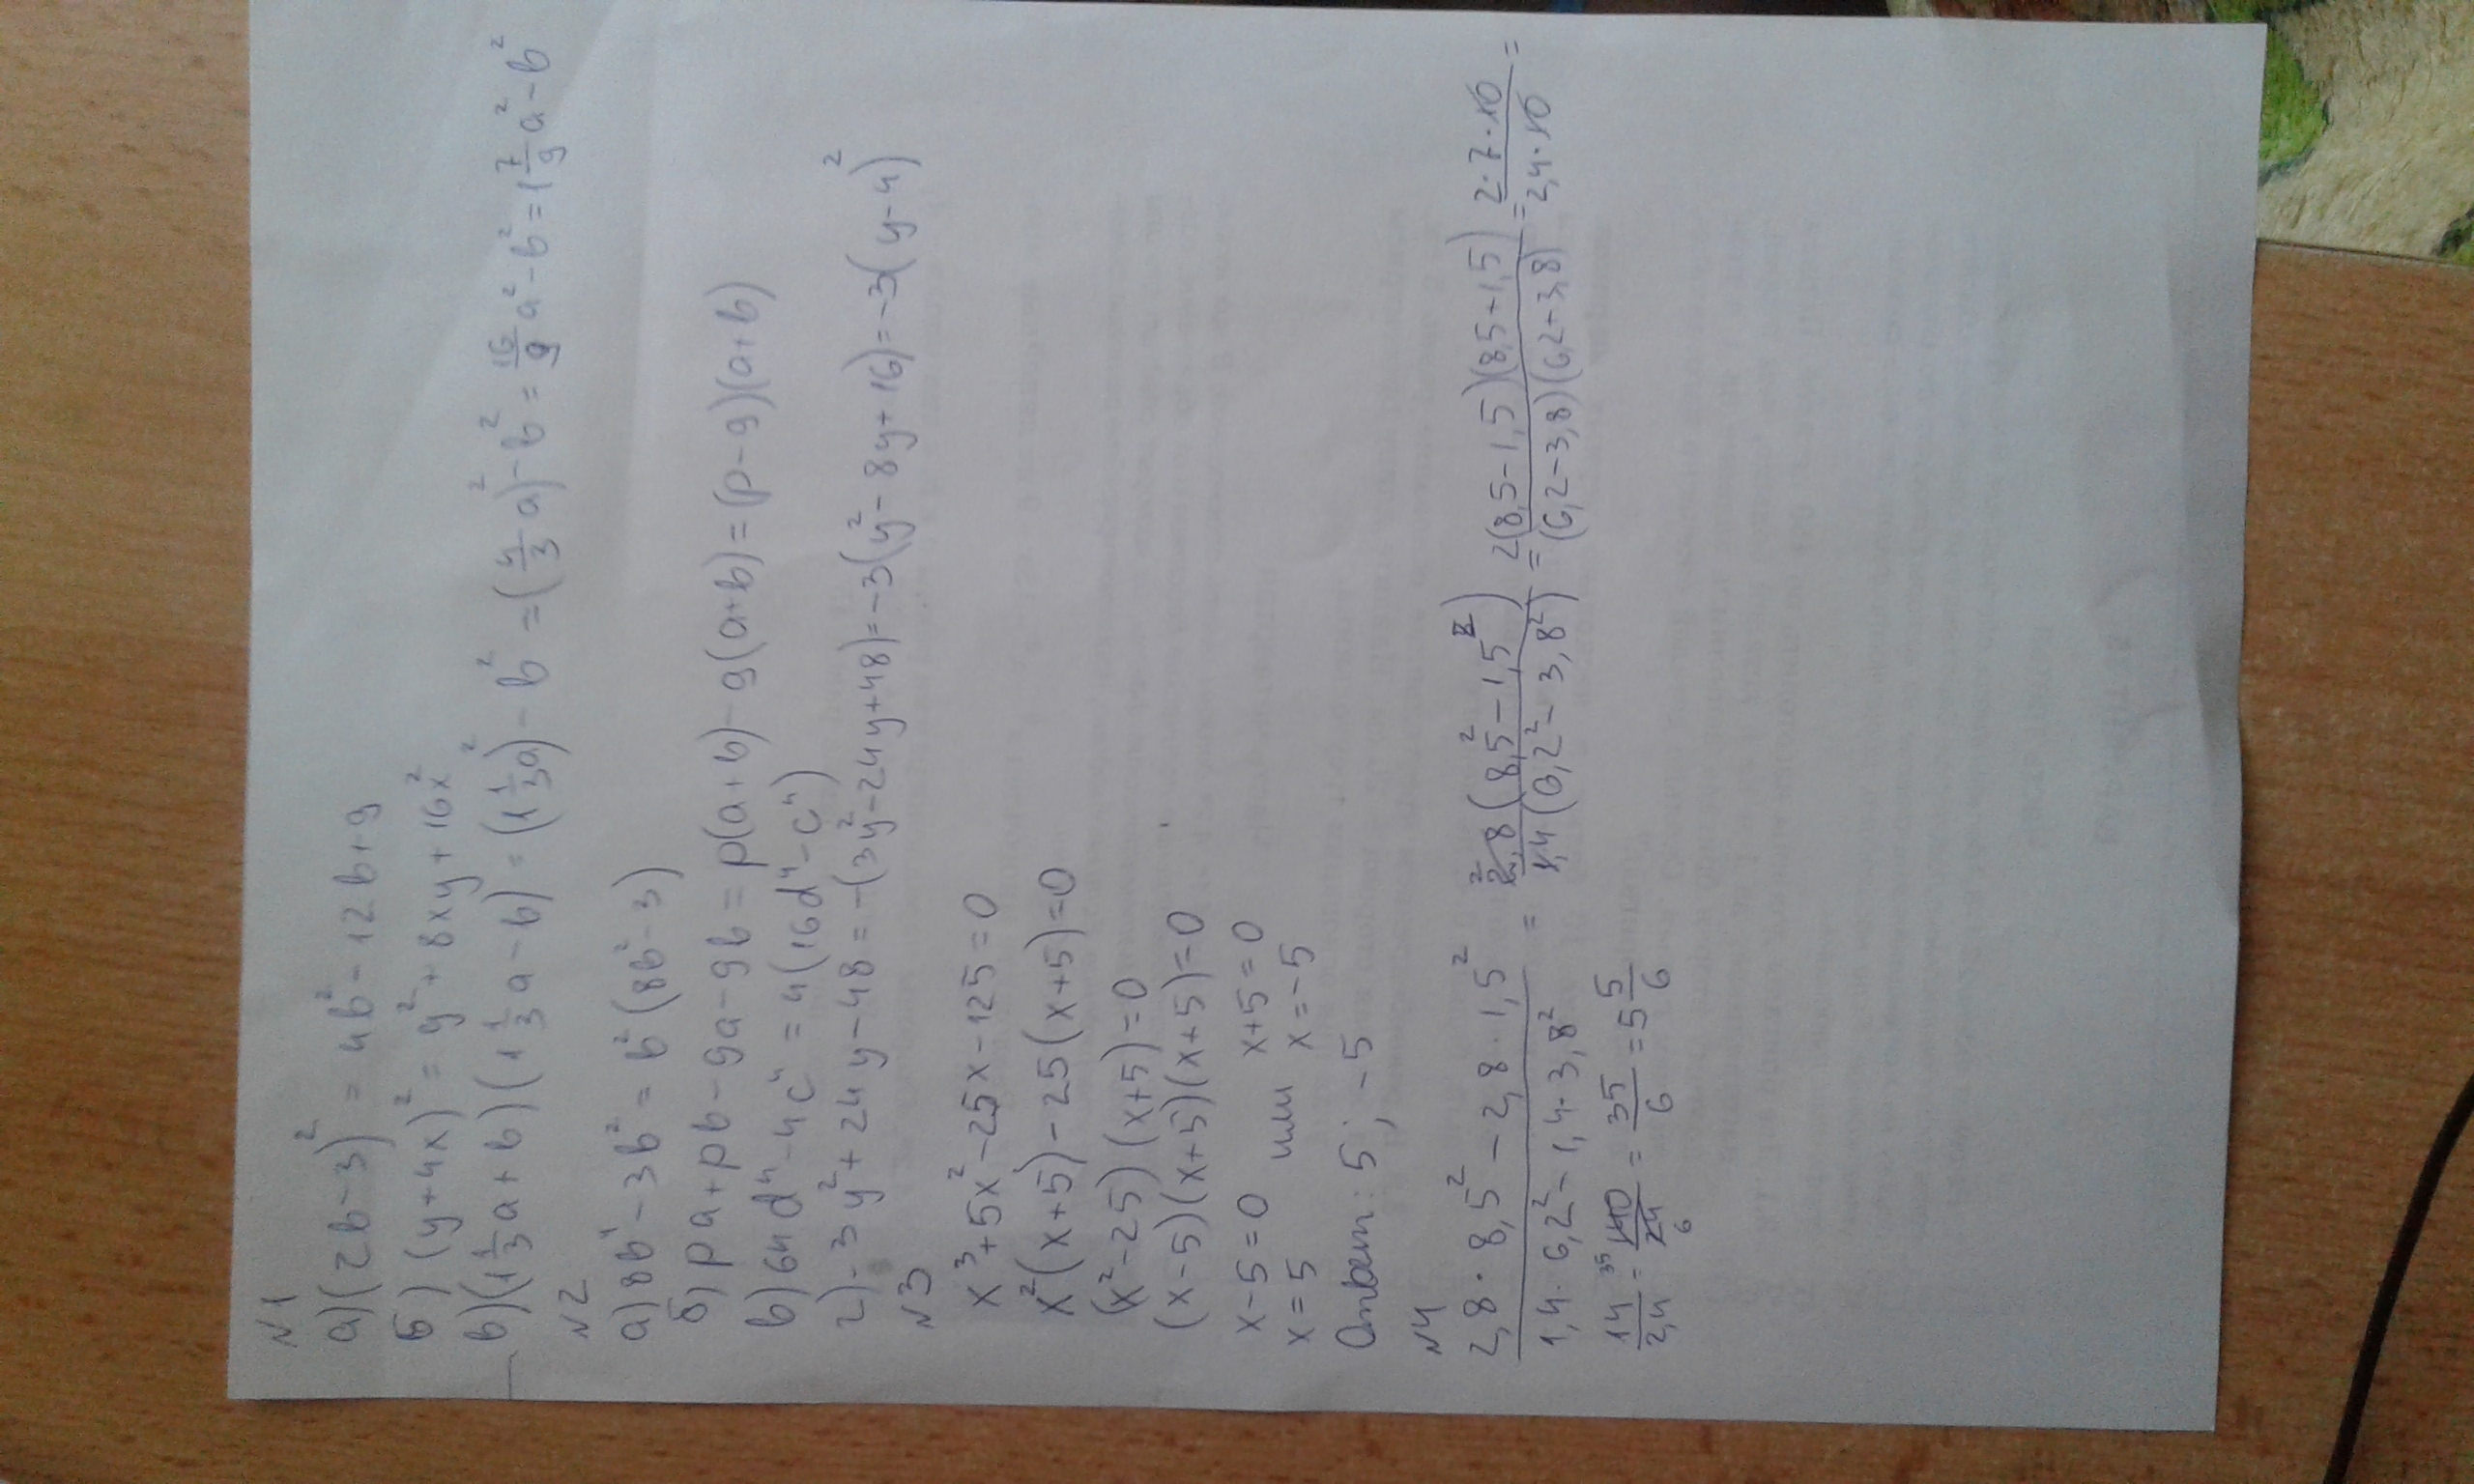 №1
а) (2b-3)² = 4b² - 12b+9
б) (y+4x)² = y² + 8xy + 16x²
в) (1 1/3 a + b)(1 1/3 a - b) = (1 1/3 a)² - b² = (4/3 a)² - b² = 16/9 a² - b² = 1 7/9 a² - b²
№2
а) 8b⁴ - 3b² = b²(8b² - 3)
б) pa+pb - 9a - 9b = p(a+b) - 9(a+b) = (p-9)(a+b)
в) 64d⁴ - 4c⁴ = 4(16d⁴ - c⁴)
г) -3y² + 24y - 48 = -(3y² - 24y+48) = -3(y² - 8y + 16) = -3(y-4)²
№3
x³ + 5x² - 25x - 125 = 0
x²(x+5) - 25(x+5) = 0
(x² - 25)(x+5) = 0
(x-5)(x+5)(x+5) = 0
x-5=0 или x+5=0
x=5 x=-5
Ответ: 5; -5
№4
(2,8 · 8,5² - 2,8 · 1,5²)/(1,4 · 6,2² - 1,4 · 3,8²) = 2,8(8,5² - 1,5²)/1,4(6,2² - 3,8²) = 2(8,5-1,5)(8,5+1,5)/(6,2-3,8)(6,2+3,8) = 2·7·10/2,4·10 =
14/2,4 = 140/24 = 35/6 = 5 5/6